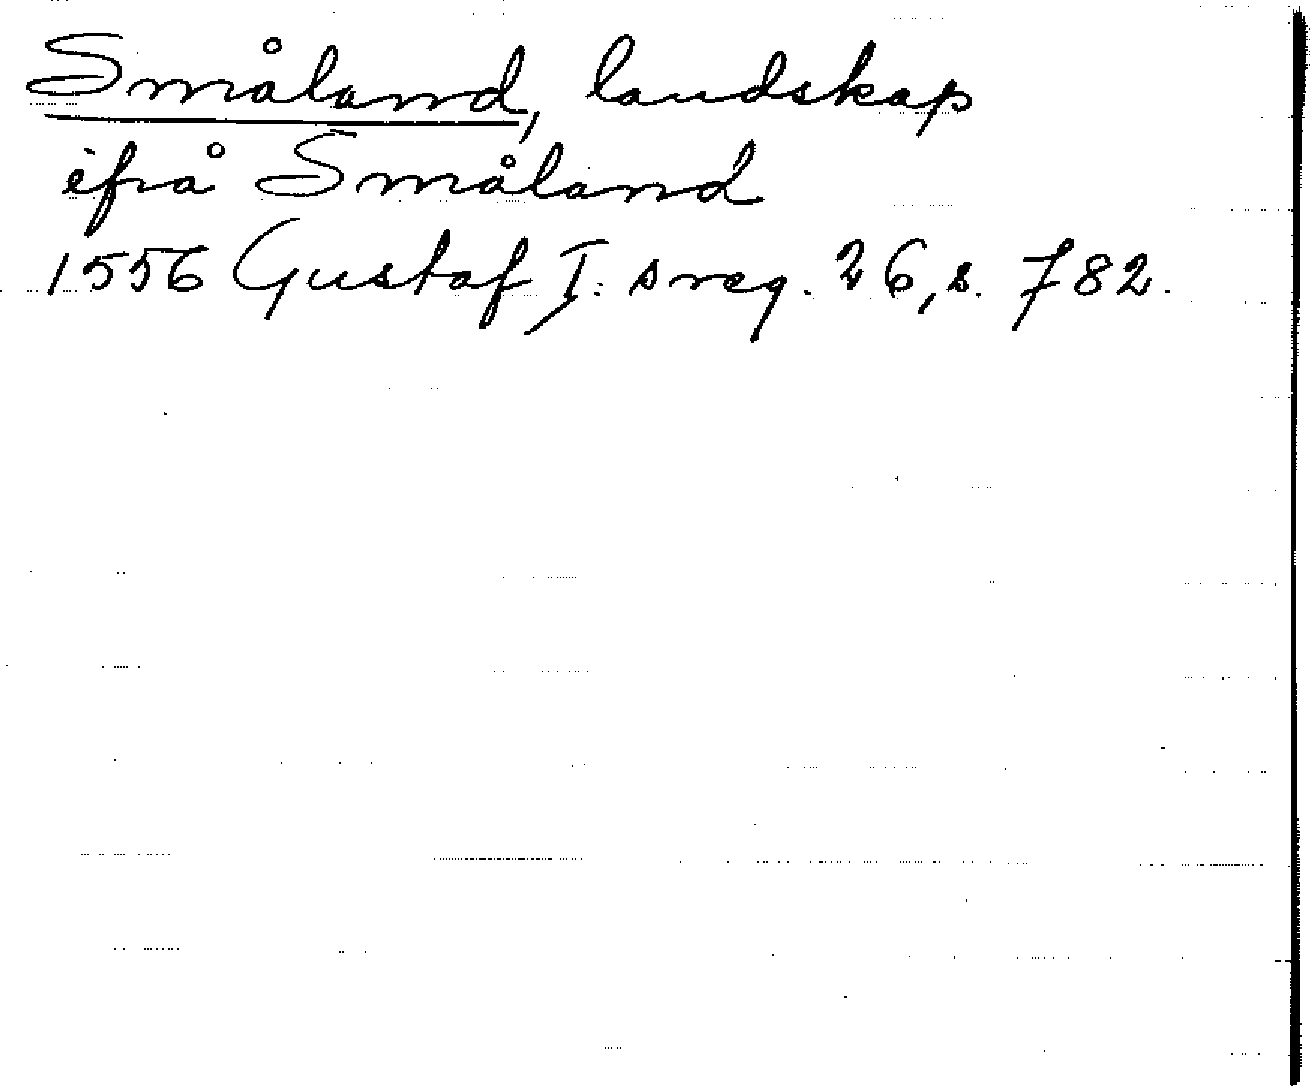 Småland, landskap
ifrå Småland
1556 Gustaf I:s reg. 26, s. 782.